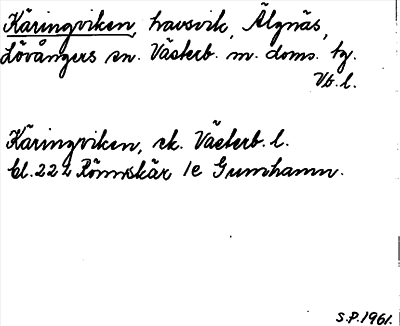 Käringviken, havsvik, Älgnäs,
Lövångers sn. Västerb. m. doms. tg.
Vb. l.
Käringviken, ek. Västerb. l.
bl. 222 Rönnskär 1e Gumhamn.
S.P. 1961.